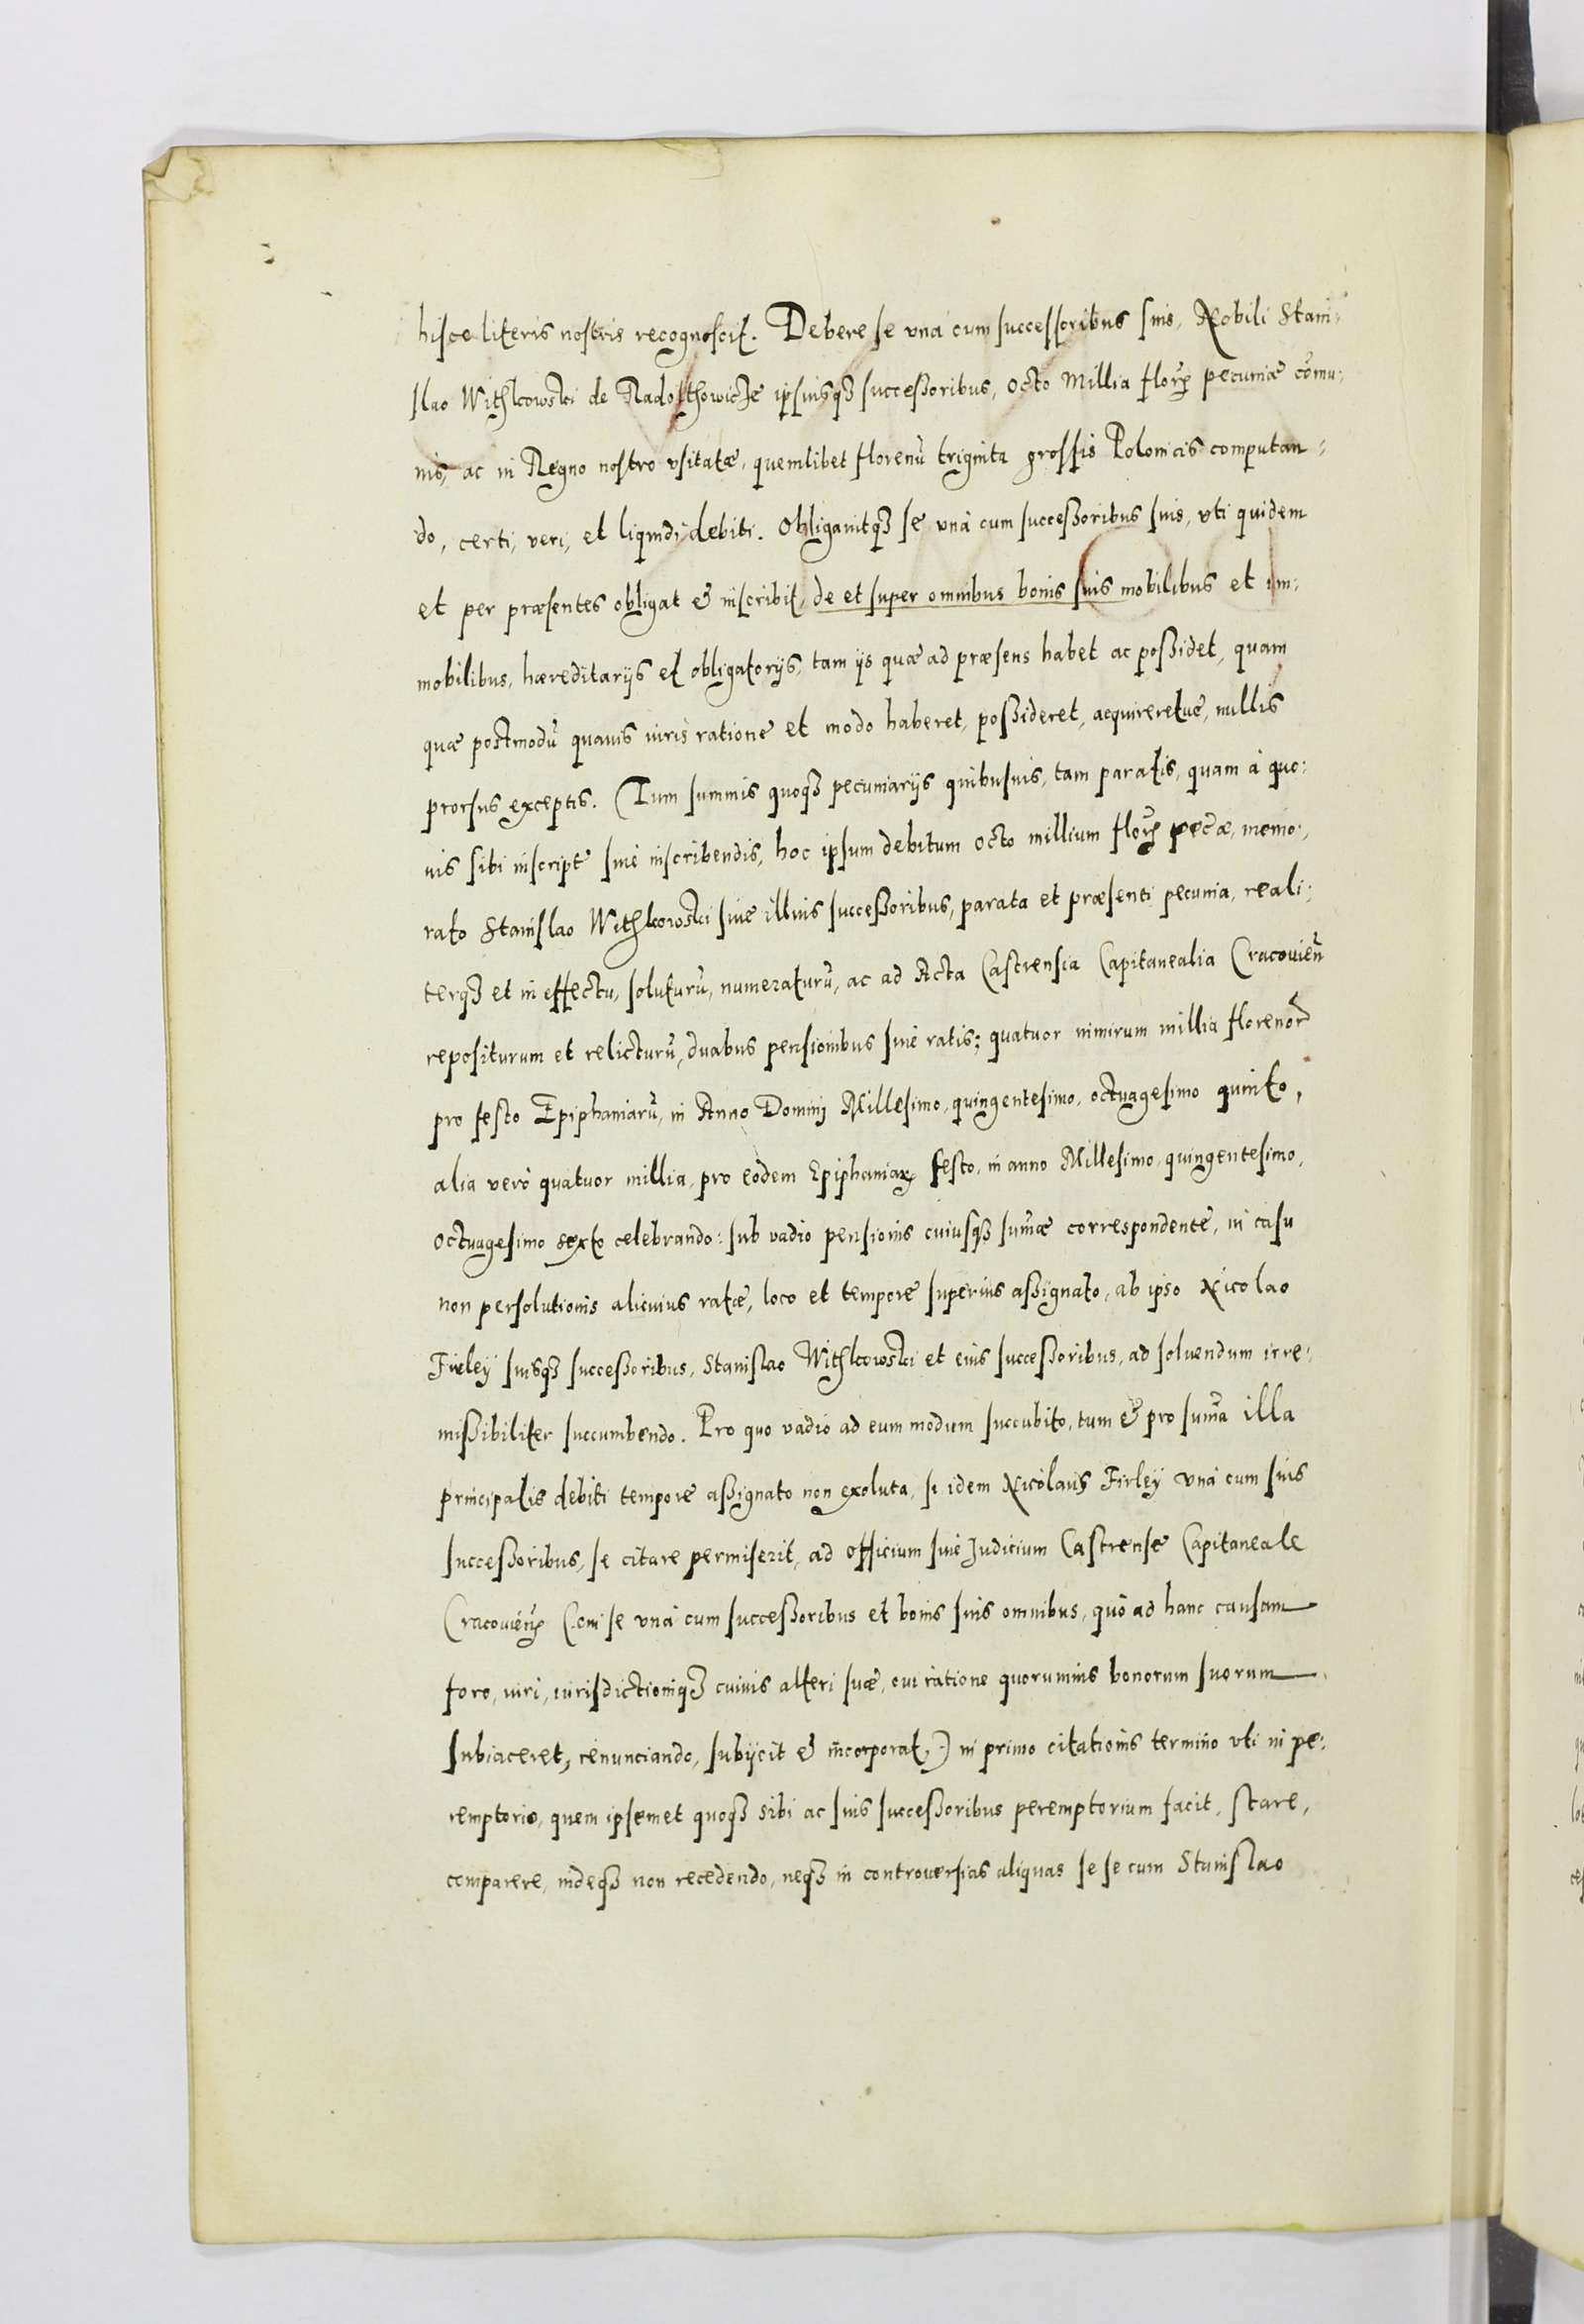 hisce literis nostris recognoscit. Debere se vna cum successoribus suis, Nobili Stani:
slao Withkowski de Radosthowicze ipsiusq3 successoribus, octo Millia floru pecuniæ comu:
nis, ac in Regno nostro vsitatæ, quemlibet florenū triginta grossis Polonicis computan:
do, certi, veri, et liquidi debiti. Obligauitq3 se vnà cum successoribus suis, vti quidem
et per præsentes obligat & inscribit, de et super omnibus bonis suis mobilibus et im:
mobilibus, hæreditarijs et obligatorijs, tam ijs quæ ad præsens habet ac possidet, quam
quæ postmodū quauis iuris ratione et modo haberet, possideret, acquireretue, nullis
prorsus exceptis. (Tum summis quoq3 pecuniarijs quibusuis, tam paratis, quam à quo:
uis sibi inscript siue inscribendis, hoc ipsum debitum octo millium flor pecæ, memo:
rato Stanislao Withkowski siue illius successoribus, parata et præsenti pecunia, reali:
terq3 et in effectu, soluturū, numeraturū, ac ad Acta Castrensia Capitanealia Cracouien̄
repositurum et relicturū, duabus pensionibus siue ratis; quatuor nimirum millia florenor
pro festo Epiphaniarū, in Anno Domini Millesimo, quingentesimo, octuagesimo quinto,
alia verò quatuor millia, pro eodem Epiphaniar festo, in anno Millesimo quingentesimo,
octuagesimo sexto celebrando: sub vadio pensionis cuiusq3 sum̄æ correspondente, in casu
non persolutionis alicuius ratæ, loco et tempore superius assignato, ab ipso Nicolao
Firleÿ suisq3 successoribus, Stanislao Withkowski et eius successoribus, ad soluendum irre:
missibiliter succumbendo. Pro quo vadio ad eum modum succubito, tum & pro sum̄a illa
principalis debiti tempore assignato non exoluta, si idem Nicolaus Firleÿ vnà cum suis
successoribus, se citare permiserit, ad officium siue Iudicium Castrense Capitaneale
Cracouien (cui se vnà cum successoribus et bonis suis omnibus, quò ad hanc causam
foro, iuri, iurisdictioniq3 cuiuis alteri suæ, cui ratione quorumuis bonorum suorum
subiaceret, renunciando, subijcit & incorporat,) in primo citationis termino vti in pe:
remptorio, quem ipsemet quoq3 sibi ac suis successoribus peremptorium facit, stare,
comparere, indeq3 non recedendo, neq3 in controuersias aliquas sese cum Stanislao